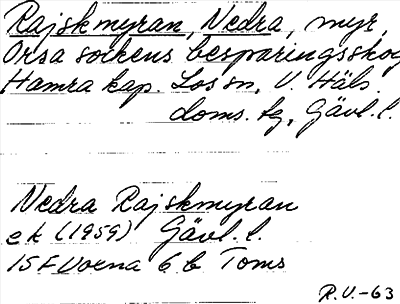 Rajskmyran, Nedra, myr,
Orsa sockens besparingsskog
Hamra kap. Los sn, V. Häls.
doms. tg, Gävl. l.
Nedra Rajskmyran
ek (1959) Gävl. l.
15 F Voxna 6 b Toms
R.V.-63